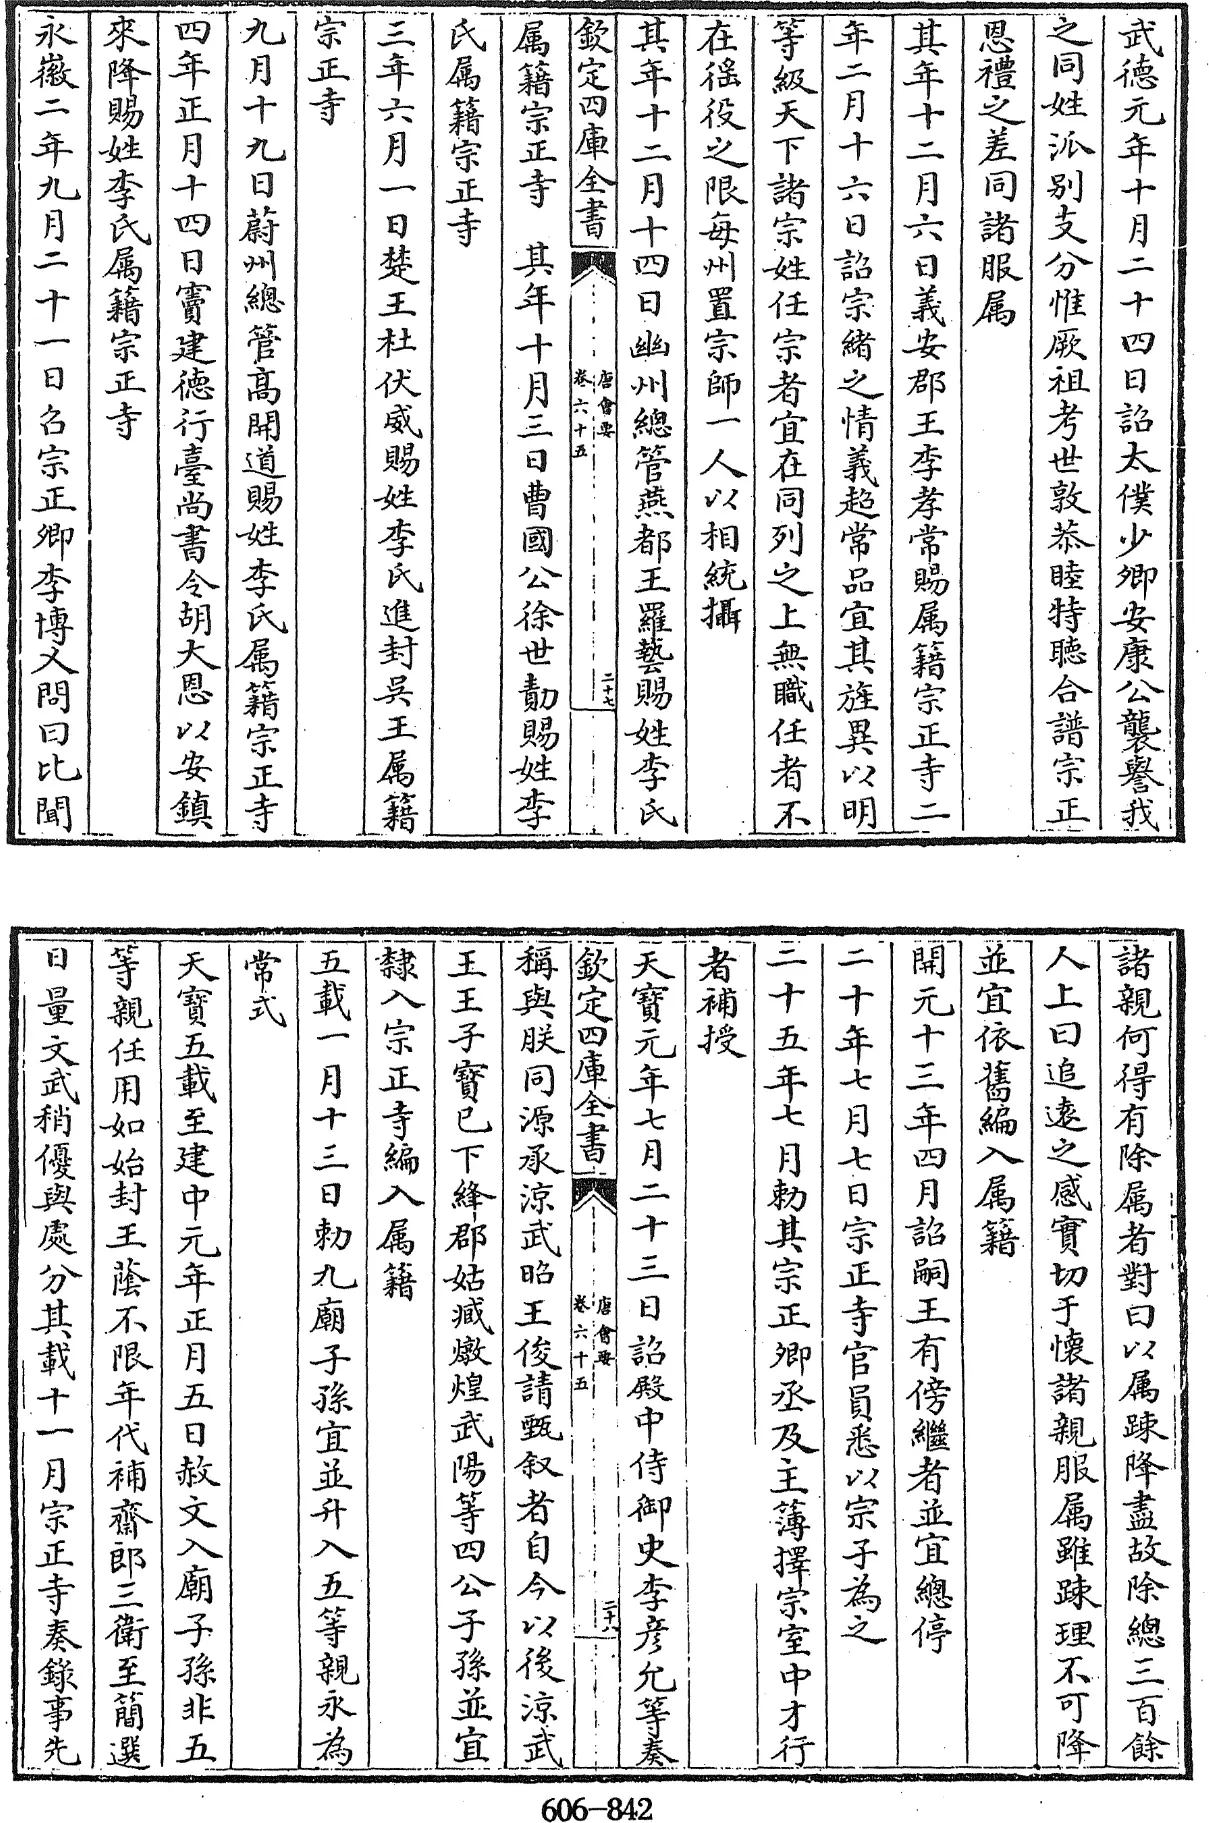 武德元年十月二十四日詔太僕少卿安康公襲譽我
之同姓派别支分惟厥祖考世敦恭睦特聴合譜宗正
恩禮之差同諸服属
其年十二月六日義安郡王李孝常賜属籍宗正寺二
年二月十六日詔宗緒之情義超常品宜其旌異以明
等級天下諸宗姓任宗者宜在同列之上無職任者不
在徭役之限每州置宗師一人以相統攝
其年十二月十四日幽州總管燕都王羅藝賜姓李氏
欽定四庫全書
唐會要
卷六十五
二十七
属籍宗正寺　其年十月三日曹國公徐世勣賜姓李
氏属籍宗正寺
三年六月一日楚王杜伏威賜姓李氏進封吳王属籍
宗正寺
九月十九日蔚州總管髙開道賜姓李氏属籍宗正寺
四年正月十四日竇建德行臺尚書令胡大恩以安鎮
來降賜姓李氏属籍宗正寺
永徽二年九月二十一日召宗正卿李博乂問曰比聞
諸親何得有除属者對曰以属踈降盡故除總三百餘
人上曰追逺之感實切于懷諸親服属雖踈理不可降
並宜依舊編入属籍
開元十三年四月詔嗣王有傍繼者並宜總停
二十年七月七日宗正寺官員悉以宗子為之
二十五年七月勅其宗正卿丞及主薄擇宗室中才行
者補授
天寶元年七月二十三日詔殿中侍御史李彦允等奏
欽定四庫全書
唐會要
卷六十五
二十八
稱與朕同源承涼武昭王俊請甄叙者自今以後涼武
王王子寶已下絳郡姑臧燉煌武陽等四公子孫並宜
隸入宗正寺編入属籍
五載一月十三日勅九廟子孫宜並升入五等親永為
常式
天寶五載至建中元年正月五日赦文入廟子孫非五
等親任用如始封王蔭不限年代補齋郎三衛至簡選
日量文武稍優與處分其載十一月宗正寺奏錄事先
606-842